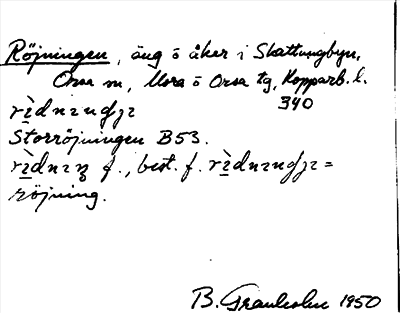 Röjningen, äng o åker i Skattungbyn,
Orsa sn, Mora o Orsa tg, Kopparb. l.
340
Storröjningen B53.
f., best. f. =
röjning.
B. 1950